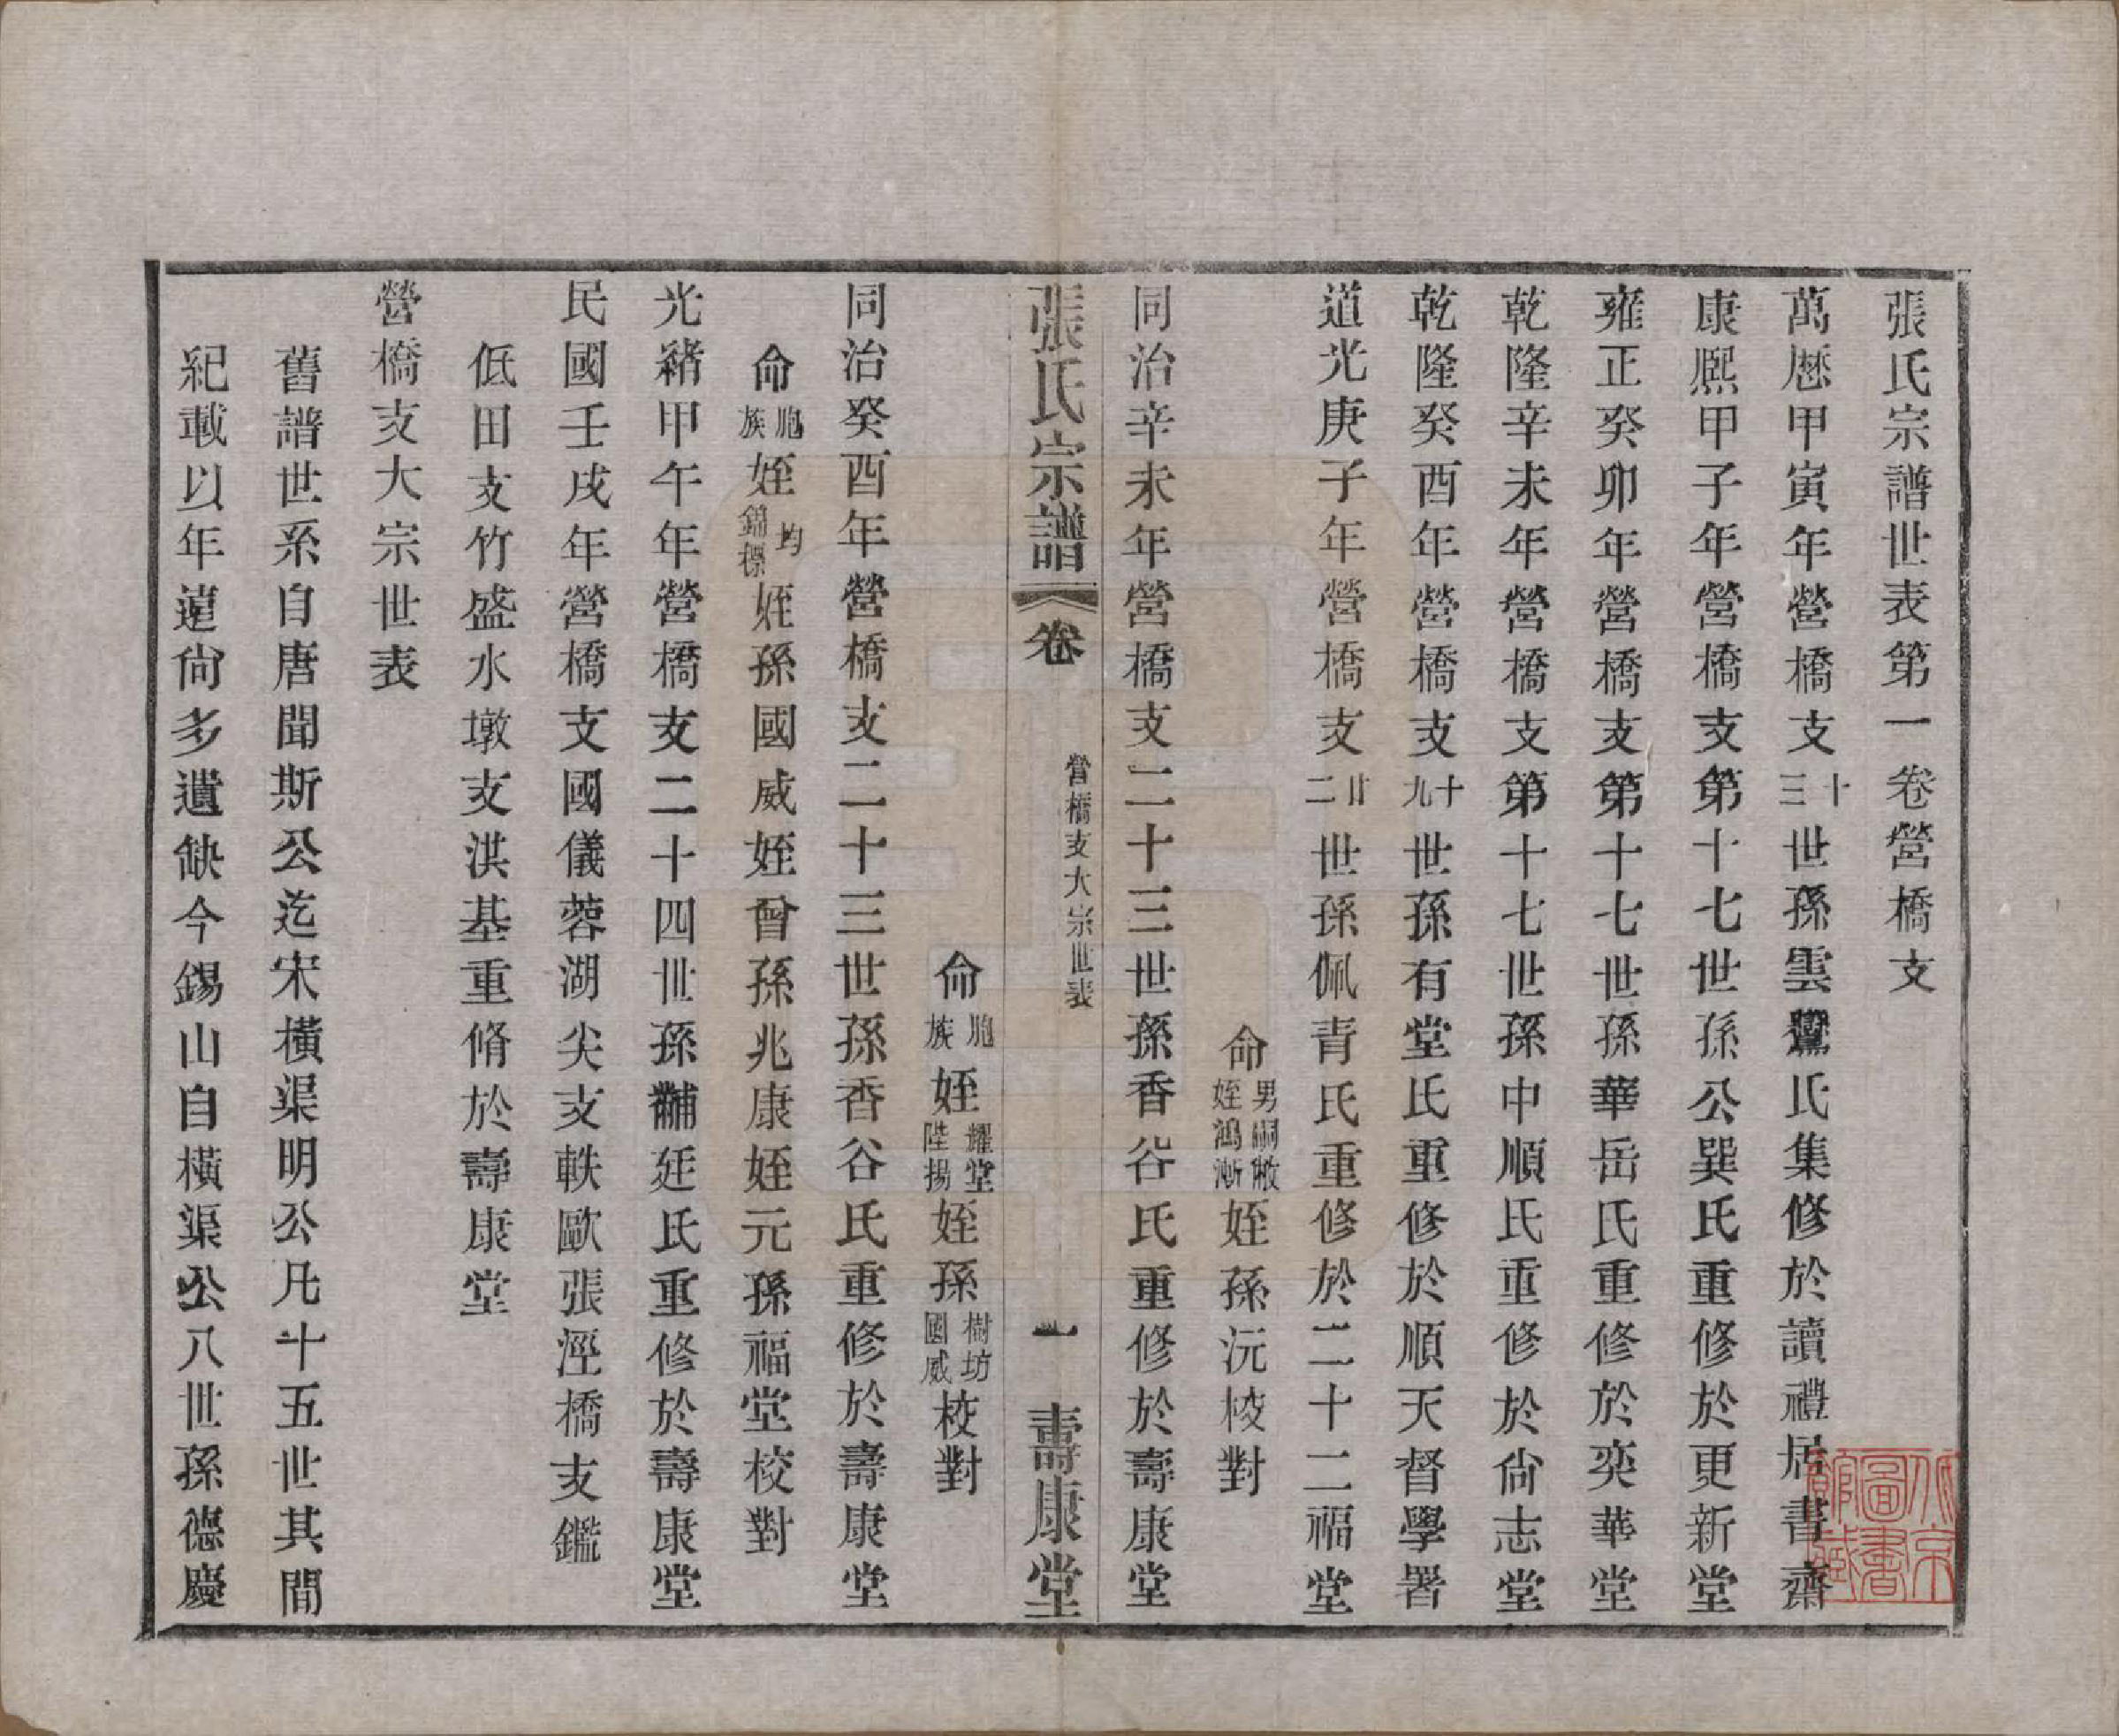 張氏宗譜世表第一卷營橋支
萬厯甲寅年營橋支十三世孫雲鷺氏集修於讀禮居書齋
康熈甲子年營橋支第十七世孫公巽氏重修於更新堂
雍正癸卯年營橋支第十七世孫華岳氏重修於奕華堂
乾隆辛未年營橋支第十七世孫中順氏重修於尙志堂
乾隆癸酉年營橋支十九世孫有堂氏重修於順天督學署
道光庚子年營橋支廿二世孫佩青氏重修於二十二福堂
命男嗣敝姪鴻漸姪孫沅校對
同治辛未年營橋支二十三世孫香谷氏重修於壽康堂
命胞族姪耀堂陞揚姪孫樹坊國威校對
張氏宗譜 卷 營橋支大宗世表 一 壽康堂
同治癸酉年營橋支二十三世孫香谷氏重修於壽康堂
命胞族姪均錦標姪孫國威姪曾孫兆康姪元孫福堂校對
光緒甲午年營橋支二十四世孫黼廷氏重修於壽康堂
民國壬戌年營橋支國儀蓉湖尖支軼歐張涇橋支鑑
低田支竹盛水墩支洪基重脩於壽康堂
營橋支大宗世表
舊譜世系自唐聞斯公迄宋橫渠明公凡十五世其間
紀載以年遠尙多遺缺今錫山自橫渠公八世孫德慶
北京圖書館藏